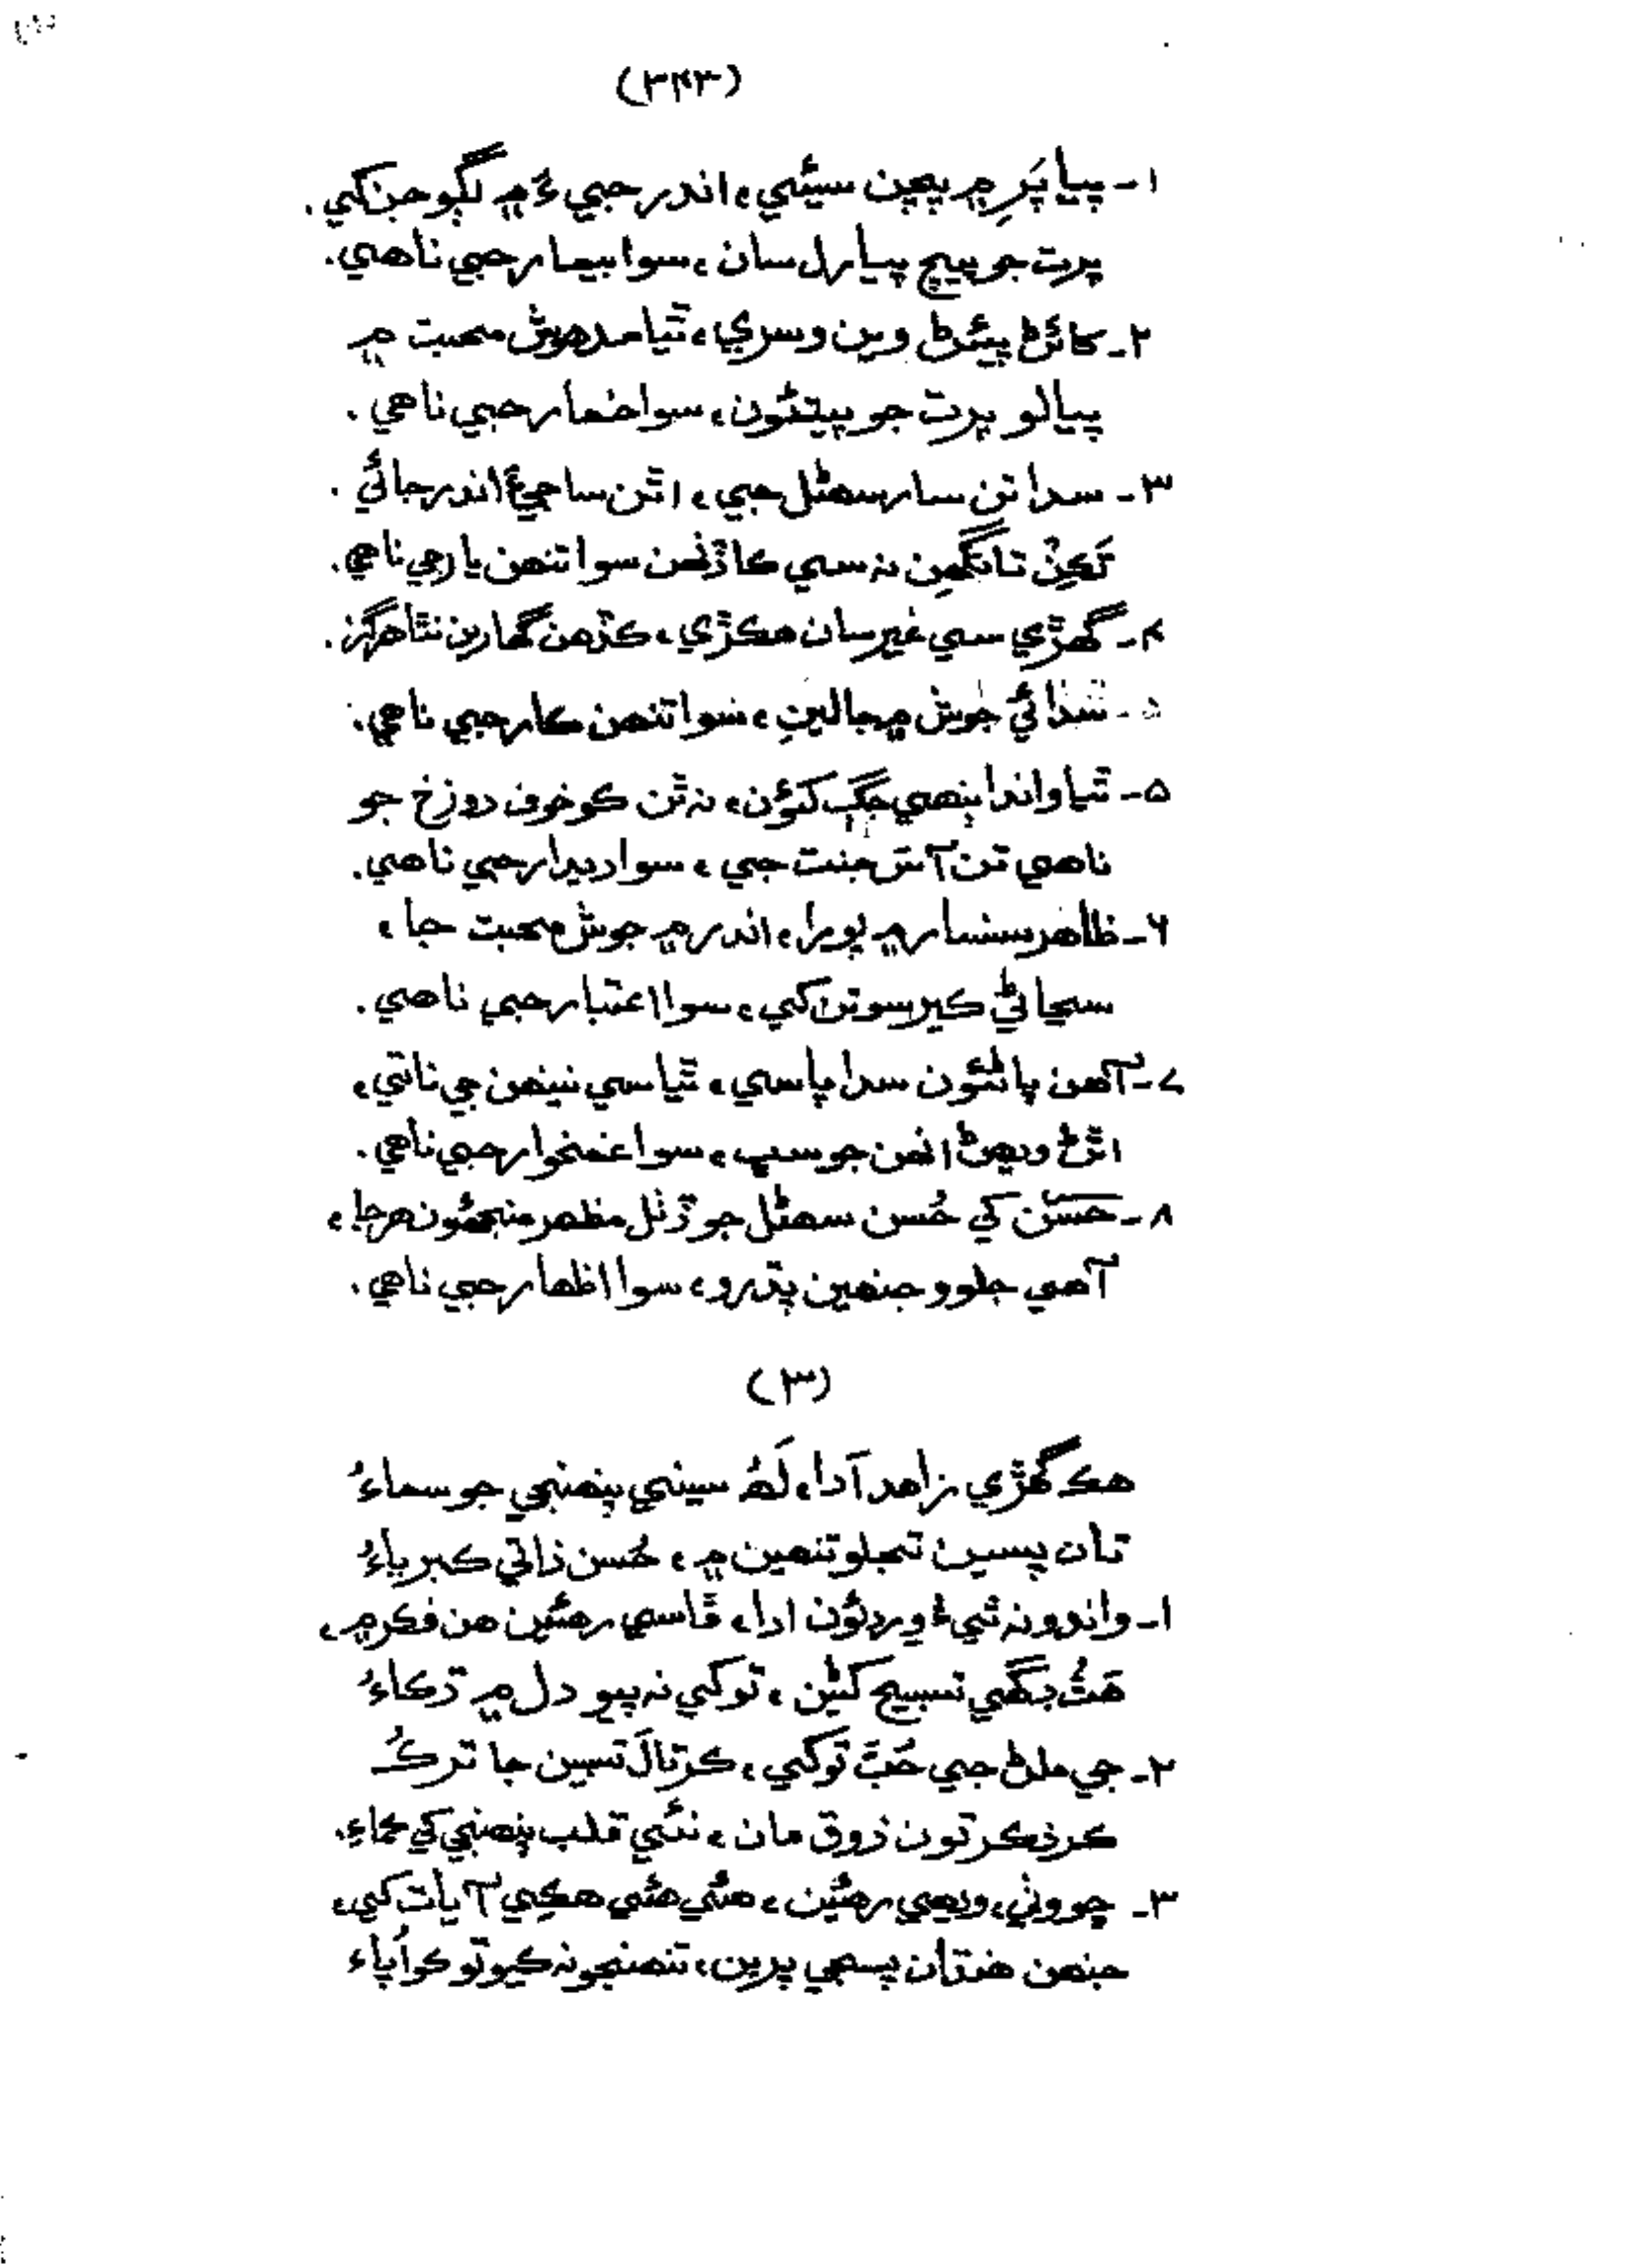 (٣٤٣)
١- پيا پَرِ ۾ پڇن سيئي، اندر جيءَ ۾ لڳو جن کي.
پرت جو پيچ پيارل سان، سوا بيمار جي ناهي.
٢- کائڻ پيئڻ وين وسري، ٿيا مدهوش محبت ۾
پيالو پرت جو پيتئون، سوا خمار جي ناهي.
٣- سدا تن سار سهڻل جي، اٿن ساجيءَ اندر جائي.
تَڪِن تانگهن نه سي ڪاڏنهن سوا تنهن يار جي ناهي.
٤- گهڙي سي غير سان هڪڙي، ڪڏهن گهارين نٿا هرگز.
سدائي جوش ۾ جالين، سوا تنهن ڪار جي ناهي.
٥- ٿيا واندا ٻنهي جڳ کئون، نه تن ڪو خوف دوزخ جو
ناهي تن آس جنت جي، سوا ديدار جي ناهي.
٦- ظاهر سنسار ۾ پورا، اندر ۾ جوش محبت جا،
سڃاڻي ڪير سو تن کي، سوا اعتبار جي ناهي.
٧- آهن پاڻئون سدا پاسي، ٿيا سي نينهن جي ناتي،
اٿڻ ويهڻ انهن جو سڀ، سوا غمخوار جي ناهي.
٨- حسن کي حُسن سهڻل جو ڏنل مظهر منجهئون هر جا،
آهي جلوو جنهين پڌرو، سوا اظهار جي ناهي.
(٣)
هڪ گهڙي زاهد آدا، لَهُ سيني پنهنجي جو سماءُ
تان پسين تجلو تنهين ۾، حُسن ذاتي ڪبرياءُ
١- واندو نه ٿيءُ وردئون ادا، ڦاسي رهئين هن فڪر ۾،
هَٿُ ٻگهي تسبيح کڻين، توکي نه پيو دل ۾ ڌڪاءُ
٢- جي ملڻ جي حُبَ توکي، ڪر تالَ تسبين جا ترڪُ
ڪر ذڪر تون ذوق مان، نئي قلب پنهنجي کي جماءِ.
٣- چووڻي، ويهي رهئين، هٿي هٿي هڪِي آيات کي،
جنهن هنڌان پسجي پرين، تنهنجو نه ڪيو تو ڪو اُپاءِ